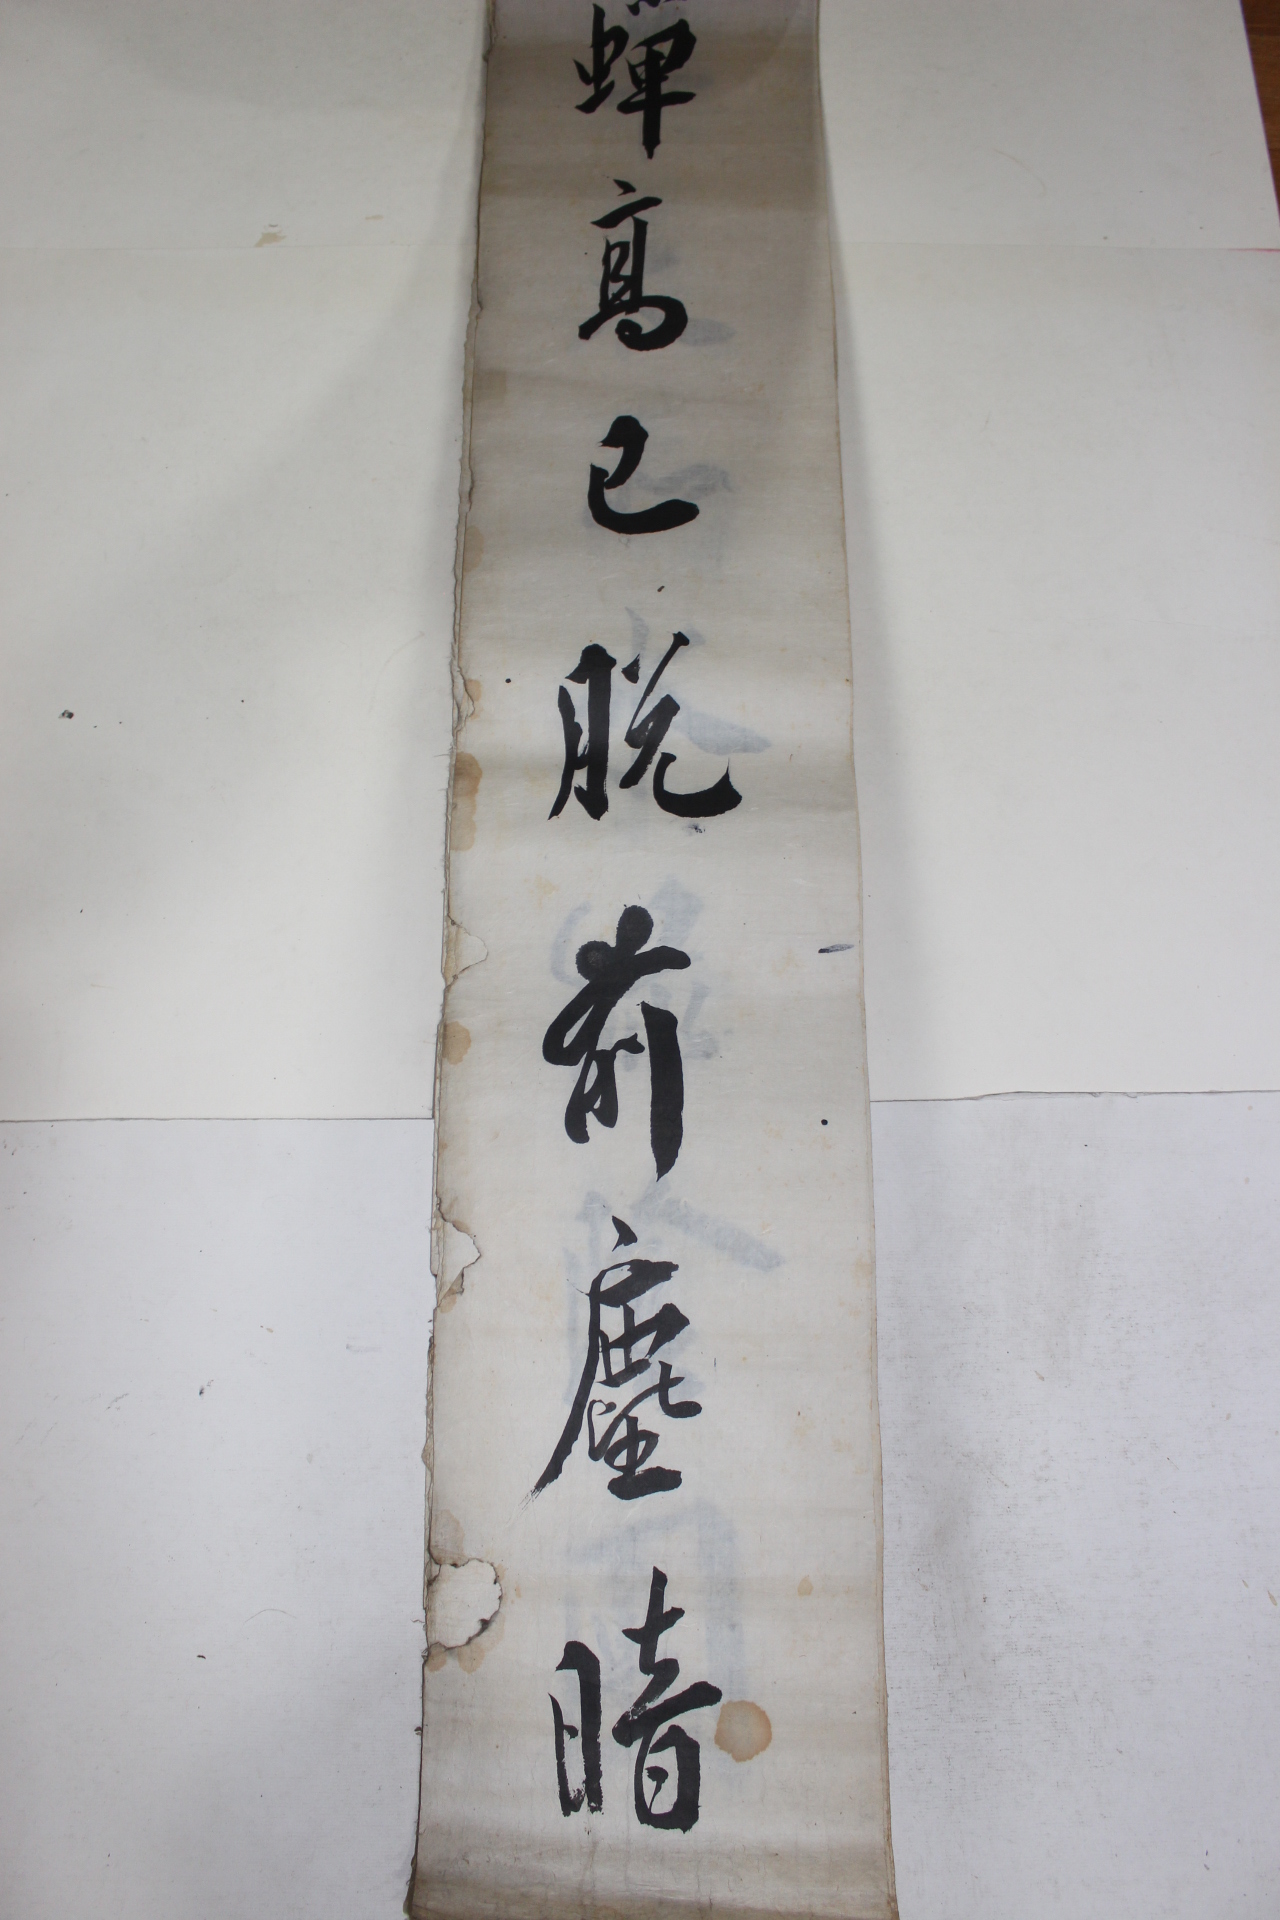 蟬高已脫前塵暗